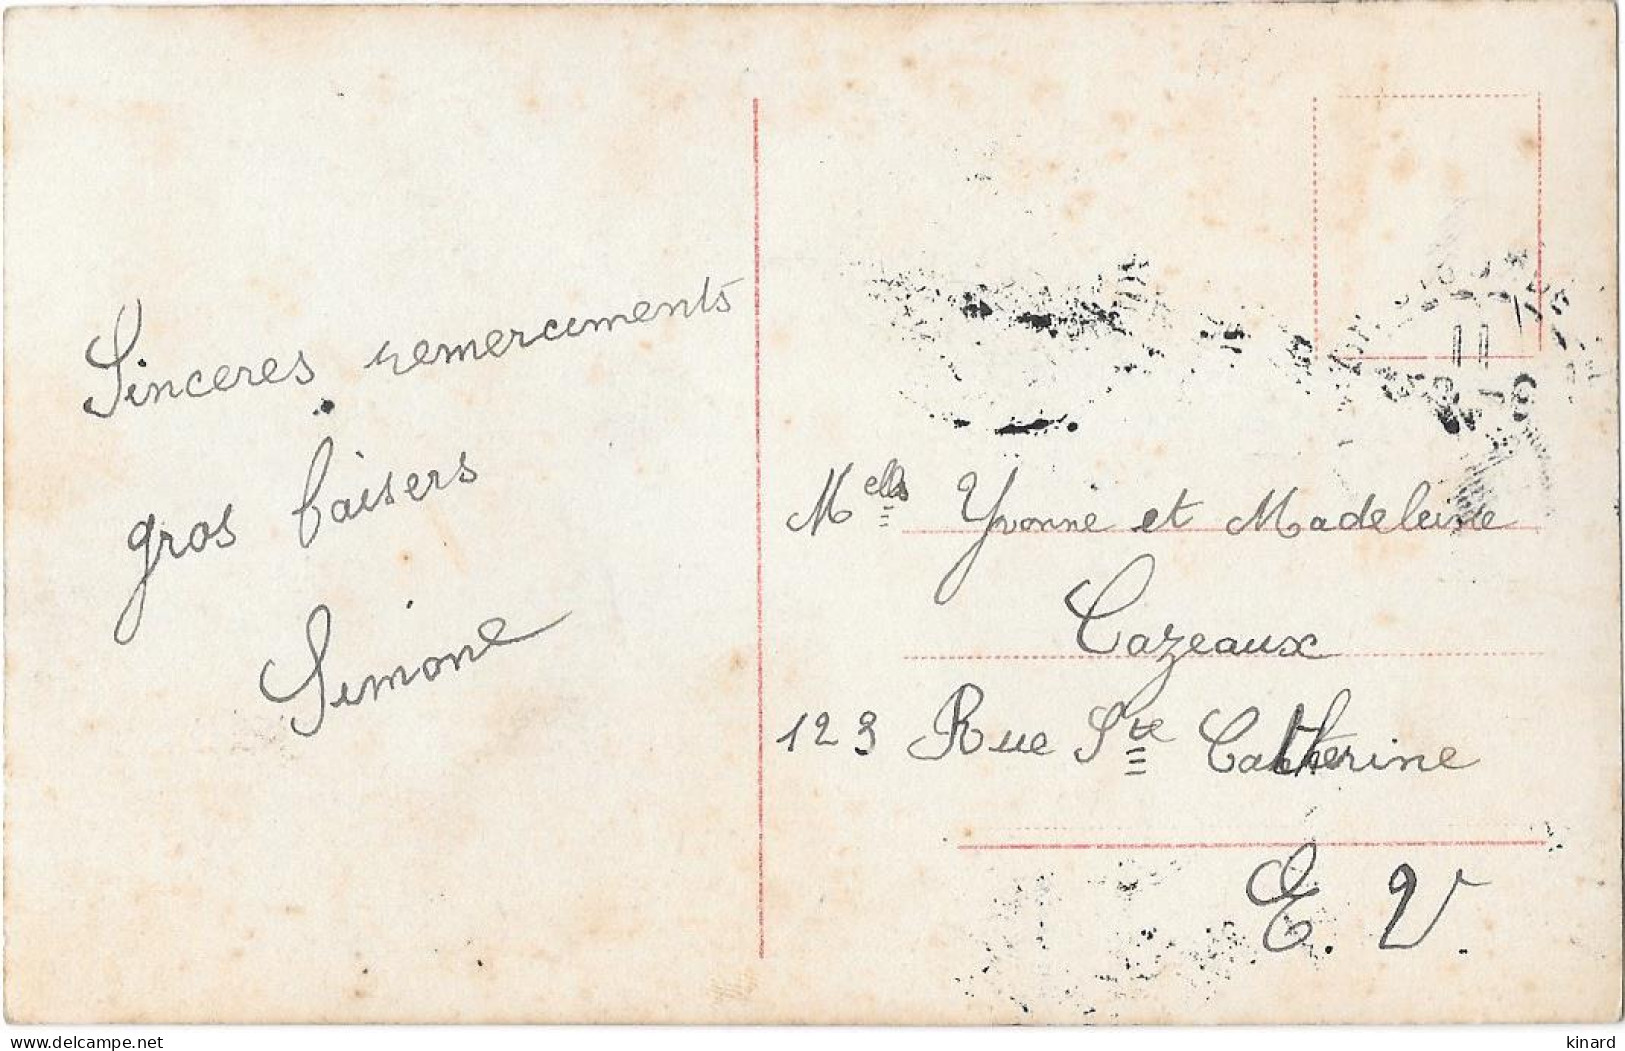 Sinceres remerciments
gros baisers
Simone
Melles Yvonne et Madeleine
Cazeaux
123 Rue Ste Catherine
E. V.
kinard